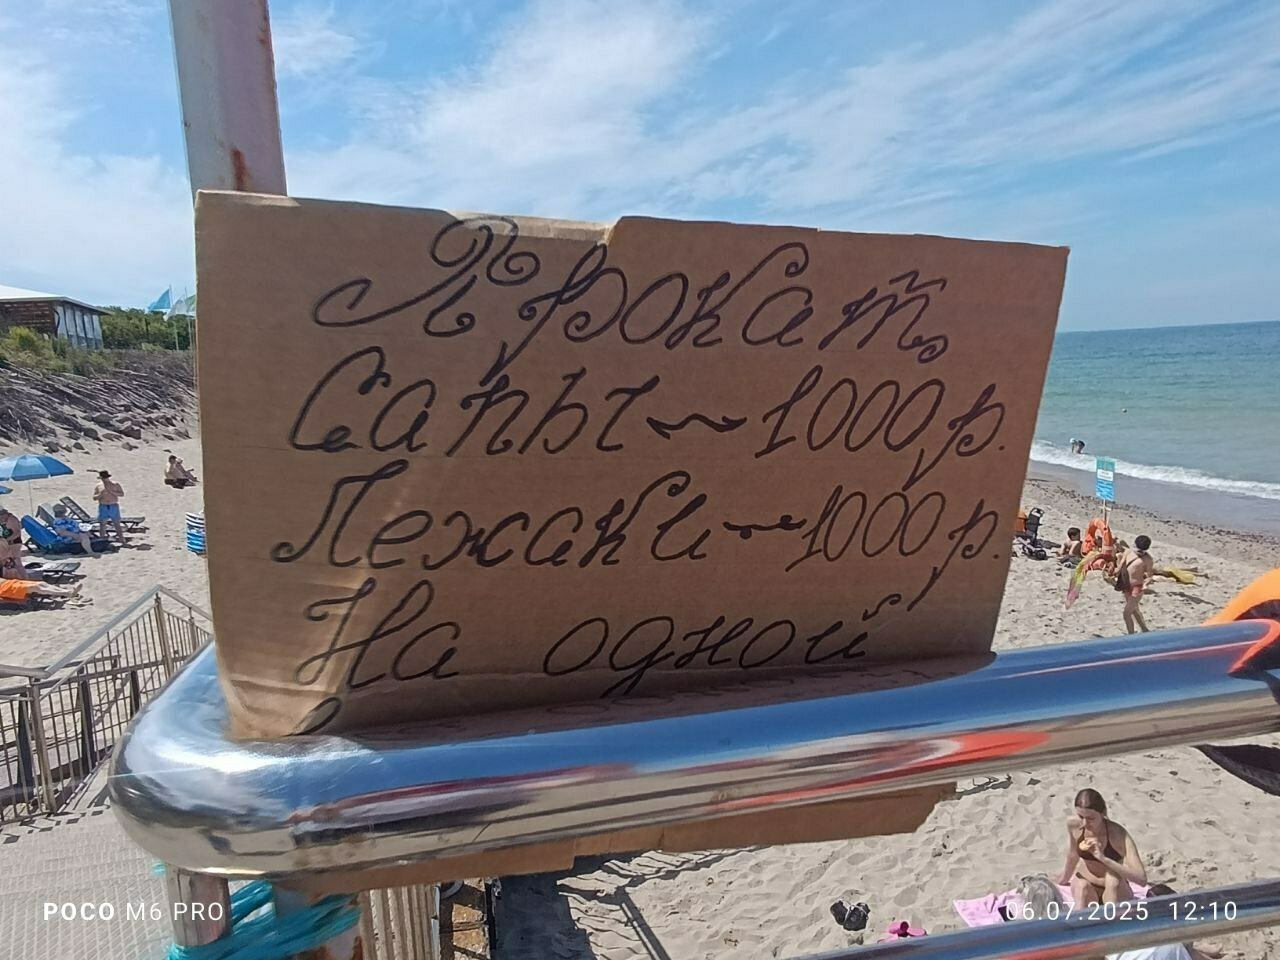 Прокат
Сапы ~ 1000 р.
Лежаки ~ 1000 р.
На одной
POCO M6 PRO
06.07.2025 12:10